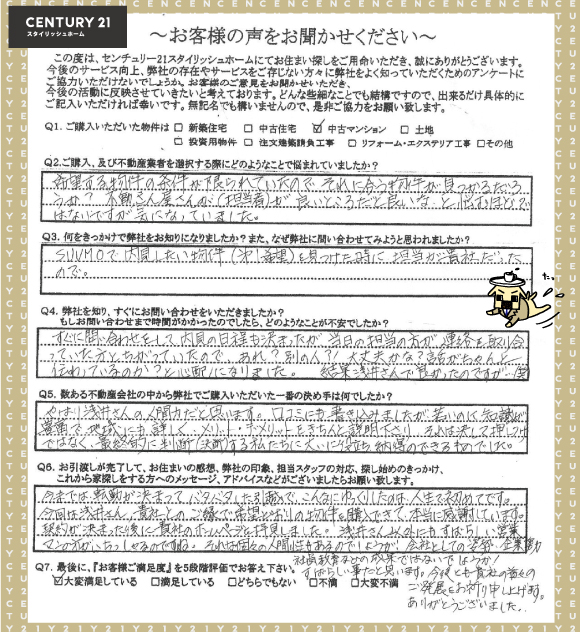 CENTURY 21
スタイリッシュホーム
～お客様の声をお聞かせください～
この度は、センチュリー21スタイリッシュホームにてお住まい探しをご用命いただき、誠にありがとうございます。
今後のサービス向上、弊社の存在やサービスをご存じない方々に弊社をよく知っていただくためのアンケートに
ご協力いただけないでしょうか。お客様のご意見をお聞かせいただき、
今後の活動に反映させていきたいと考えております。どんな些細なことでも結構ですので、出来るだけ具体的に
ご記入いただければ幸いです。無記名でも構いませんので、是非ご協力をお願い致します。
Q1. ご購入いただいた物件は □ 新築住宅 □ 中古住宅 ☑ 中古マンション □ 土地
□ 投資用物件 □ 注文建築請負工事 □ リフォーム・エクステリア工事 □その他
Q2.ご購入、及び不動産業者を選択する際にどのようなことで悩まれていましたか？
希望する物件の条件が限られていたので、それに合う物件が見つかるだろ
うか？不動さん屋さんが(担当者)が良いところだと良いな、と悩むほどで
はないですが気になっていました。
Q3. 何をきっかけで弊社をお知りになりましたか？また、なぜ弊社に問い合わせてみようと思われましたか？
SUUMOで内見したい物件(第1希望)を見つけた時に、担当が貴社だった
ので。
Q4. 弊社を知り、すぐにお問い合わせをいただきましたか？
もしお問い合わせまで時間がかかったのでしたら、どのようなことが不安でしたか？
すぐに問い合わせをして、内見の日程も決まったが、当日の担当の方が、連絡を取り合
っていた方とちがっていたので、あれ？別の人？！大丈夫かな？話がちゃんと
伝わっているのか？と心配になりました。 結果、浅井さんで良かったのですが
Q5. 数ある不動産会社の中から弊社でご購入いただいた一番の決め手は何でしたか？
やはり浅井さんの人間力だと思います。口コミにも書き込みましたが若いのに知識が
豊富で、地域にも詳しく、メリット・デメリットをきちんと説明下さし、それは決して押しつけ
ではなく、最終的に判断(決断)する私たちに大いに役立ち納得のできるものでした。
Q6. お引渡しが完了して、お住まいの感想、弊社の印象、担当スタッフの対応、探し始めのきっかけ、
これから家探しをする方へのメッセージ、アドバイスなどがございましたらお願い致します。
今までは転勤が決まってバタバタした引越で、こんなにゆっくりしたのは人生で初めてです。
今回は浅井さん、貴社とのご縁で希望どおりの物件を購入できて、本当に感謝しています。
契約が決まった後に貴社のホームページを拝見しました。浅井さん以外にもすばらしい営業
マンの方がいらっしゃるのですね。それは個々の人間性もあるのでしょうが、会社としての姿勢、企業努力
社員教育などの成果ではないでしょうか！
すばらしい事だと思います。今後とも貴社の益々の
ご発展をお祈り申し上げます。
ありがとうございました。
Q7. 最後に、『お客様ご満足度』を5段階評価でお答え下さい。
☑大変満足している □満足している □どちらでもない □不満 □大変不満